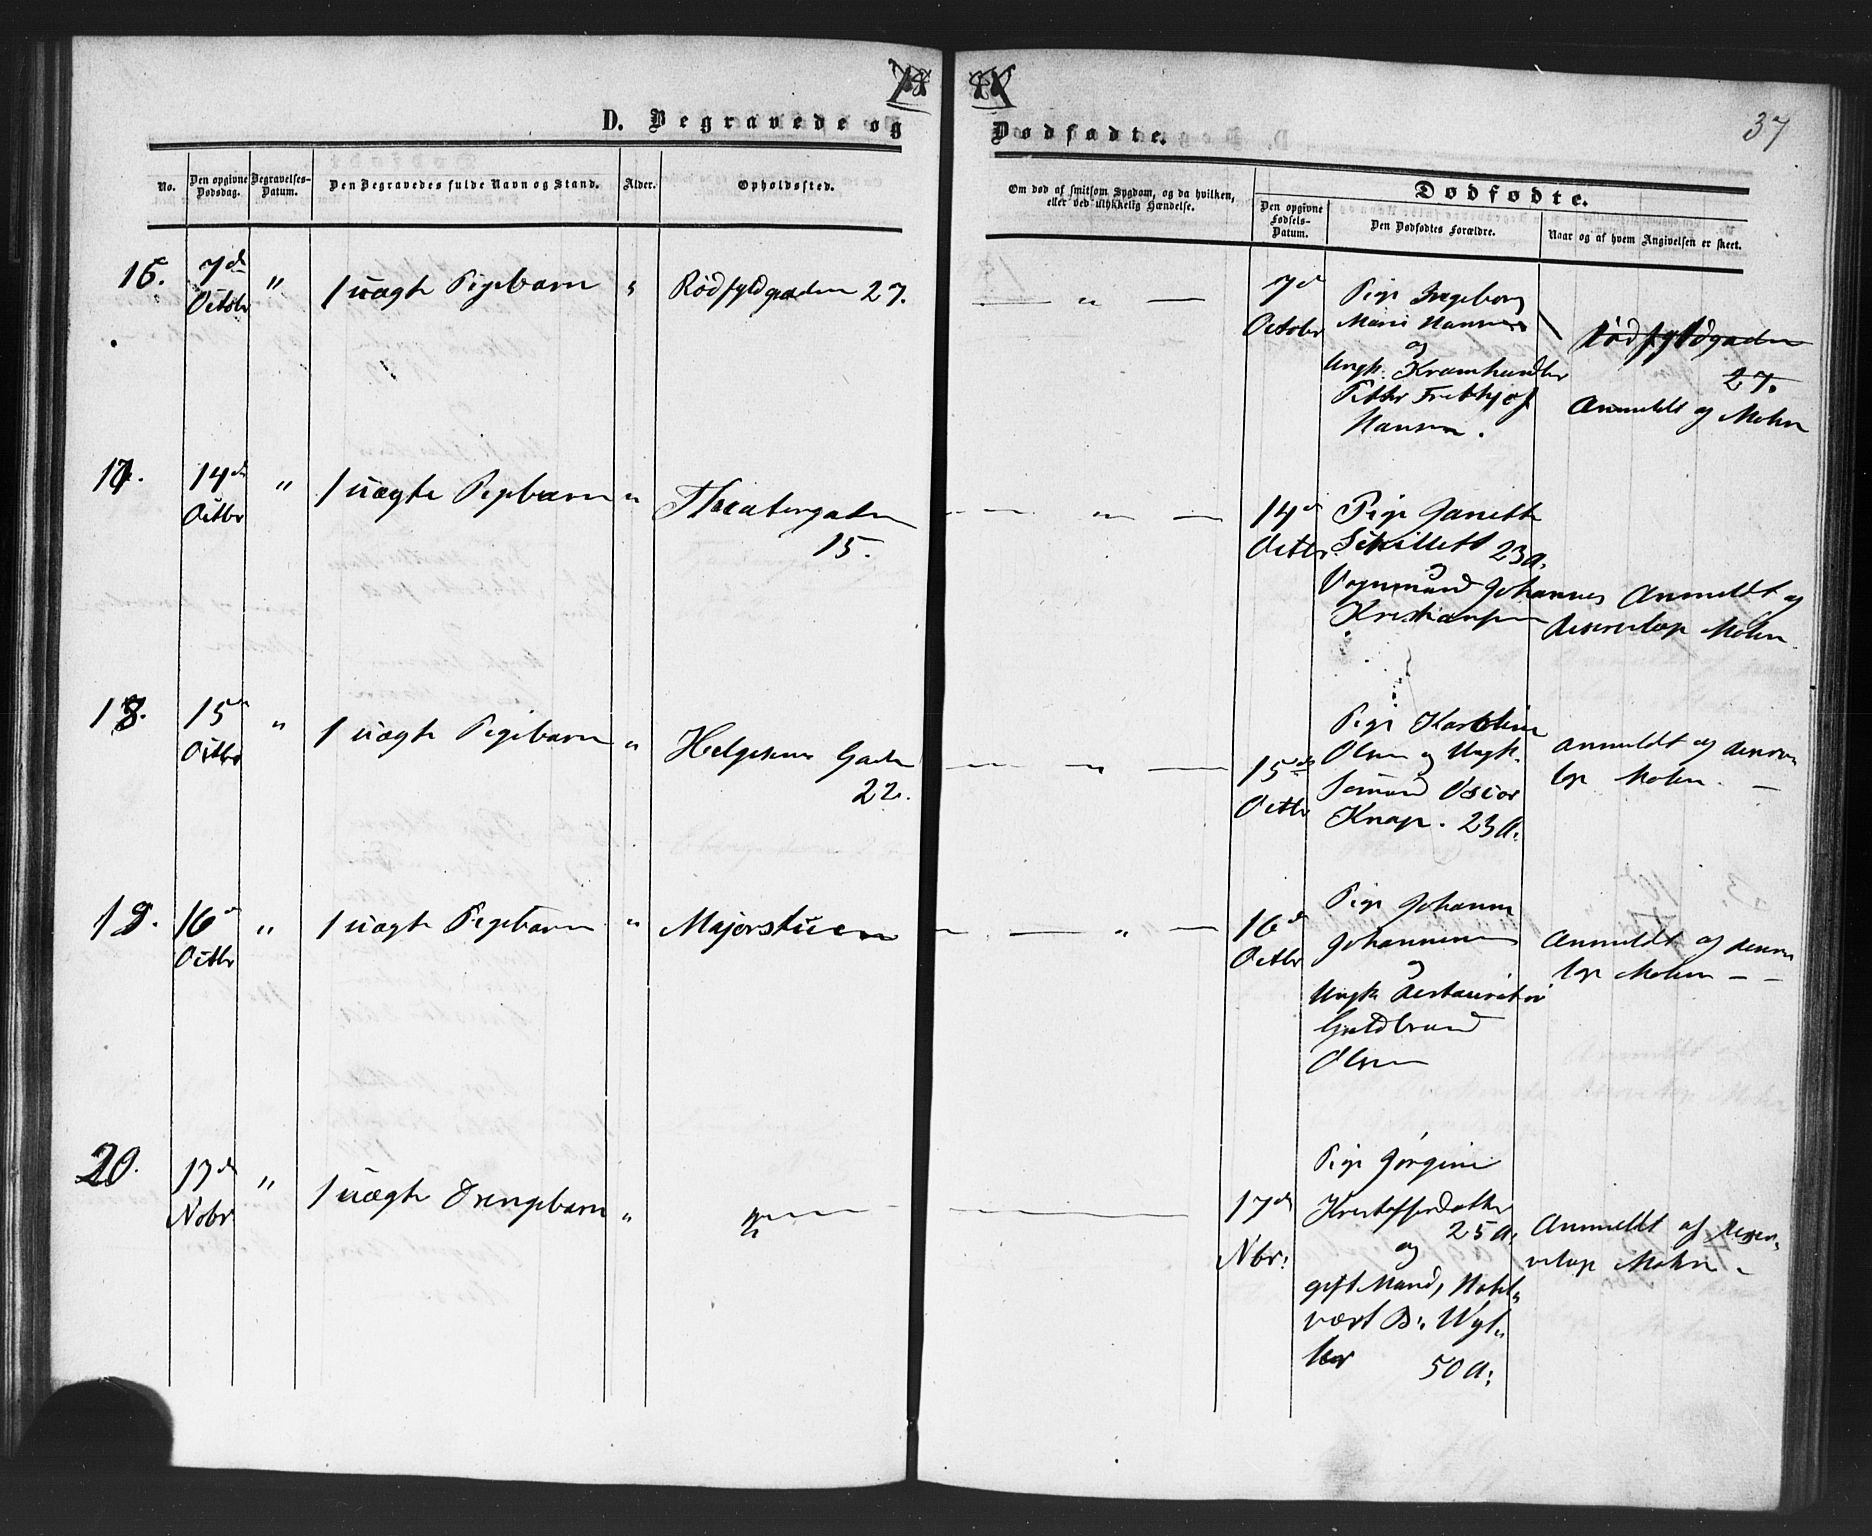 D. Begravede og
Dødfødte.
37
No.
Den opgivne Dødsdag.
Begravelses-Datum.
Den Begravedes fulde Navn og Stand.
Alder.
Opholdssted.
Om død af smitsom Sygdom, og da hvilken,
eller ved ulykkelig Hændelse.
Dødfødte.
Den opgivne Fødsels-Datum.
Den Dødfødtes Forældre.
Naar og af hvem Angivelsen er skeet.
16.
7de
Octobr
"
1 uægte Pigebarn
"
Rødfyldgaden 27.
— " —
7de
Octobr
Pige Ingeborg
Marie Hansen
og
Ungk. Kramhandler
Petter Frithjof
Hansen.
Rødfyldgaden
27.
Anmeldt af Mohn
17.
14de
Octbr
"
1 uægte Pigebarn
"
Theatergaden
15.
— " —
14de
Octbr.
Pige Janette
23 A.
og
Vognmand Johannes
Kristiansen
Anmeldt af
Mohn.
18.
15de
Octbr
"
1 uægte Pigebarn
"
Helgesens Gade
22.
— " —
15de
Octbr
Pige Karoline
Olsen og Ungk.
Sømand Oscar
Knap. 23 A.
Anmeldt af
Mohn. —
19.
16de
Octbr
"
1 uægte Pigebarn
"
Majorstuen
— " —
16de
Octbr
Pige Johanne
Johannesen
og
Ungk. Restauratør
Guldbrand
Olsen
Anmeldt af
Mohn — —
20.
17de
Nobr
"
1 uægte Drengebarn
"
17de
Nbr.
Pige Jørgine
Kristoffersdatter
25 A.
og
gift Mand,
vært B.
50 A.
Anmeldt af
Mohn —